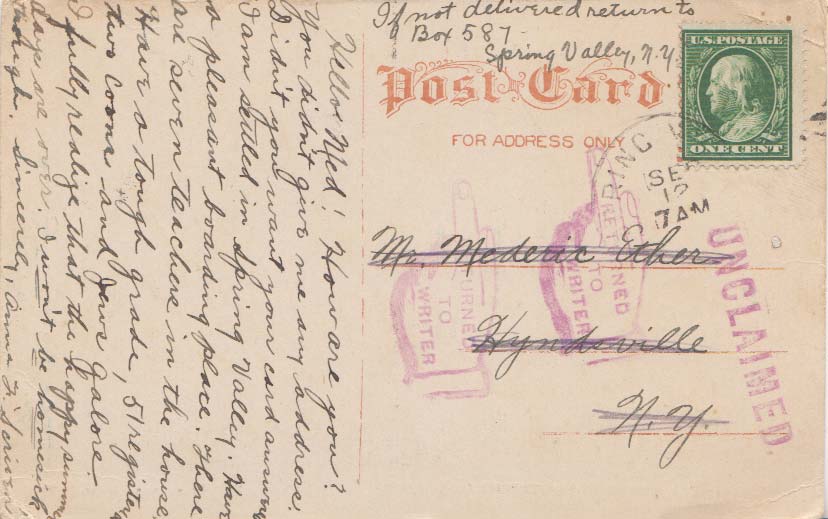 If not delivered return to
Box 587
Spring Valley, N.Y.
Post Card
FOR ADDRESS ONLY
U.S. POSTAGE
ONE CENT
RING
SE
12
7 AM
Mr. Mederic Ether
Hyndsville
N.Y.
RETURNED
TO
WRITER
TURNED
TO
WRITER
UNCLAIMED.
Hello! Med! How are you?
You didn't give me any address.
Didn't you want your card answered
I am settled in Spring Valley. Have
a pleasant boarding place. There
are seven teachers in the house.
Have a tough grade, 51 register,
two coons and Jews galore
I fully realize that the happy summer
days are over. I won't be homesick
though. Sincerely, Anna